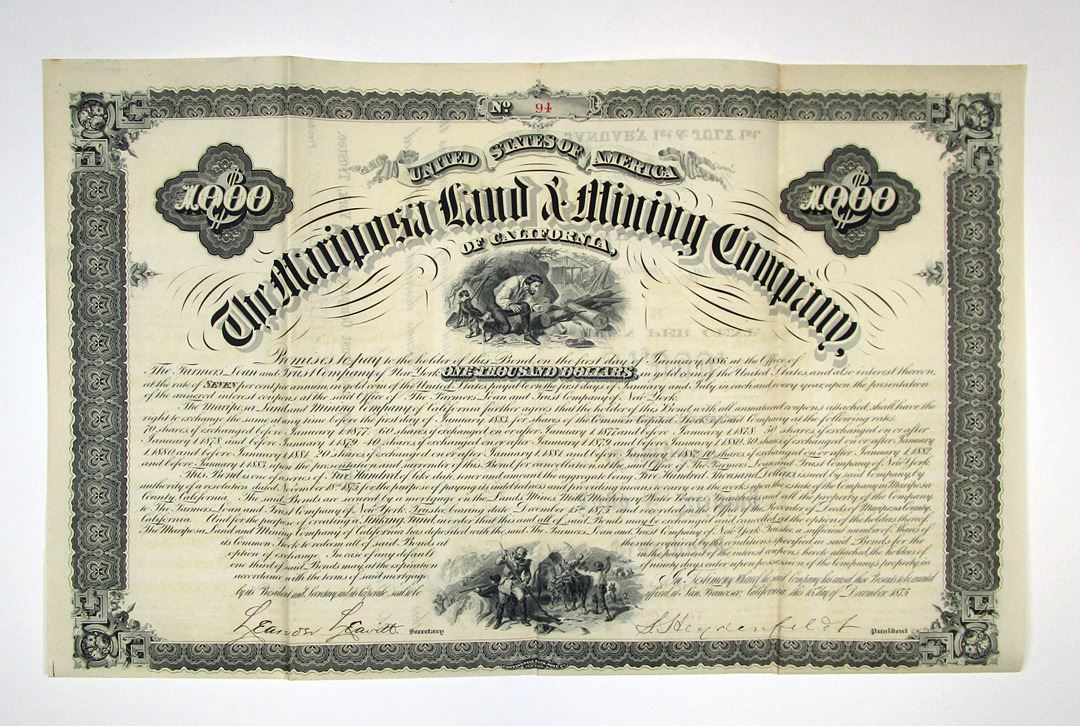 Nº 94
UNITED STATES OF AMERICA
$1000 $1000
The Mariposa Land & Mining Company,
OF CALIFORNIA,
Promises to pay to the holder of this Bond on the first day of January 1886, at the Office of
The Farmers Loan and Trust Company of New York ONE THOUSAND DOLLARS, in gold coin of the United States, and the interest thereon,
at the rate of SEVEN per cent per annum, in gold coin of the United States, payable on the first days of January and July, in each and every year, upon the presentation
of the annexed interest coupons at the said Office of The Farmers Loan and Trust Company of New York.
The Mariposa Land and Mining Company of California further agrees that the holder of this Bond, with all unmatured coupons attached, shall have the
right to exchange the same at any time before the first day of January 1883, for shares of the Common Capital Stock of said Company at the following rates
70 shares if exchanged before January 1 1877; 60 shares if exchanged on or after January 1 1877 and before January 1 1878. 50 shares if exchanged on or after
January 1 1878 and before January 1 1879. 40 shares if exchanged on or after January 1 1879 and before January 1 1880. 30 shares if exchanged on or after January
1 1880 and before January 1 1881. 20 shares if exchanged on or after January 1 1881 and before January 1 1882. 10 shares if exchanged on or after January 1 1882
and before January 1 1883 upon the presentation and surrender of this Bond for cancellation, at the said Office of The Farmers Loan and Trust Company of New York.
This Bond is one of a series of Five Hundred of like date, tenor and amount the aggregate being Five Hundred Thousand Dollars issued by said Company by
authority of its Trustees dated November 18th 1875 for the purpose of paying its indebtedness and providing means to carry on the works upon the estate of the Company in Mariposa
County, California. The said Bonds are secured by a mortgage on the Lands Mines Mills Machinery Water Power & Franchises and all the property of the Company,
to The Farmers Loan and Trust Company of New York, Trustee, bearing date December 15th 1875 and recorded in the Office of the Recorder of Deeds of Mariposa County,
California. And for the purpose of creating a Sinking Fund in order that this and all of said Bonds may be exchanged and cancelled at the option of the holders thereof
The Mariposa Land and Mining Company of California has deposited with the said The Farmers Loan and Trust Company of New York Trustee a sufficient number of Shares of
its Common Stock to redeem all of said Bonds at the rate required by the conditions specified in said Bonds for the
option of exchange. In case of any default in the payment of the interest coupons hereto attached the holders of
one third of said Bonds may, at the expiration of ninety days, enter upon possession of the Company's property, in
accordance with the terms of said mortgage
In Testimony Whereof the said Company has caused these Presents to be executed
by its President and Secretary and its Corporate seal to be affixed, at San Francisco California this 15 day of December 1875
Leander Leavitt Secretary
S. Heydenfeldt President